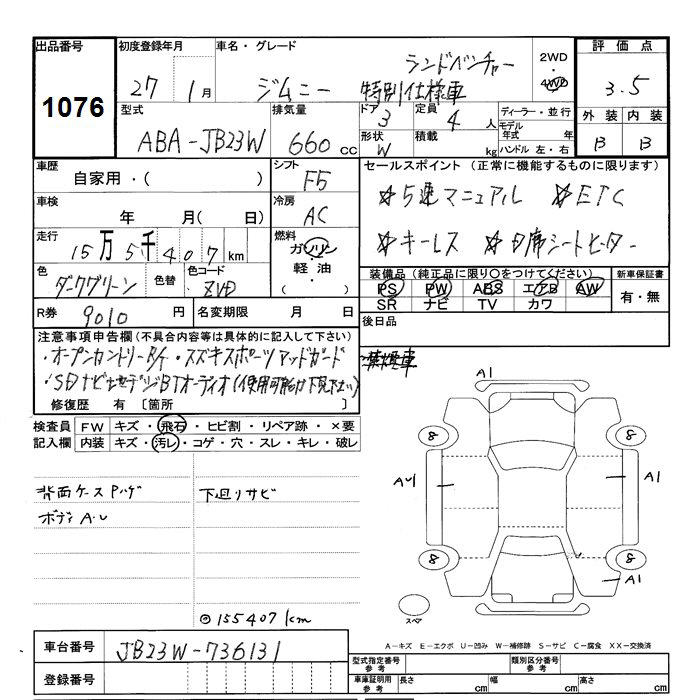 出品番号 初度登録年月 車名・グレード 2WD・4WD 評価点
1076 27年1月 ジムニー ランドベンチャー 特別仕様車 3.5
型式 排気量 ドア 定員 ディーラー・並行 外装 内装
ABA-JB23W 660cc 3 4人 モデル年式 年 B B
形状 W 積載 kg ハンドル 左・右
車歴 シフト セールスポイント (正常に機能するものに限ります)
自家用・( ) F5
☆5速マニュアル ☆ETC
車検 冷房
年 月( 日) AC
☆キーレス ☆D席シートヒーター
走行 燃料
15万5千407km ガソリン・軽油・
色 色替 色コード 装備品 (純正品に限り○をつけてください) 新車保証書
ダークグリーン ZVD PS PW ABS エアB AW 有・無
SR ナビ TV カワ
R券 9010円 名変期限 月 日 後日品
注意事項申告欄(不具合内容等は具体的に記入して下さい)
・オープンカントリーR/T・スズキスポーツマッドガード
禁煙車
修復歴 有 [箇所 ]
検査員 FW キズ・飛石・ヒビ割・リペア跡・×要
記入欄 内装 キズ・汚レ・コゲ・穴・スレ・キレ・破レ
背面ケースPハゲ 下廻りサビ
ボディA.U
◎155407km
A1
8 8
AU A1
8 8
A1
スペア
A-キズ E-エクボ U-凹み W-補修跡 S-サビ C-腐食 XX-交換済
車台番号 JB23W-736131
登録番号
型式指定番号 参考 類別区分番号 参考
車庫証明用 参考 長さ cm 幅 cm 高さ cm